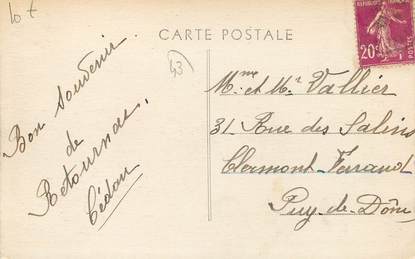 10 f
CARTE POSTALE
43
RÉPUBLIQUE FRANÇAISE
20c
POSTES
Bon Souvenir
de
Retournac,
Cédon
Mme et Mr Vallier
31 Rue des Salins
Clermont-Ferrand
Puy-de-Dôme